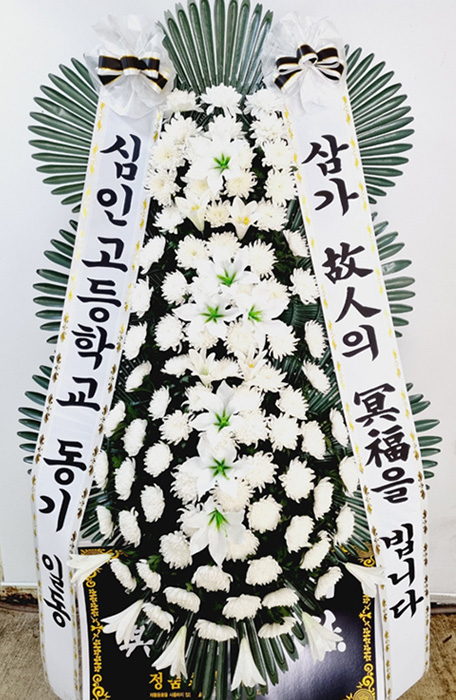 심인고등학교 동기 일동
삼가 故人의 冥福을 빕니다